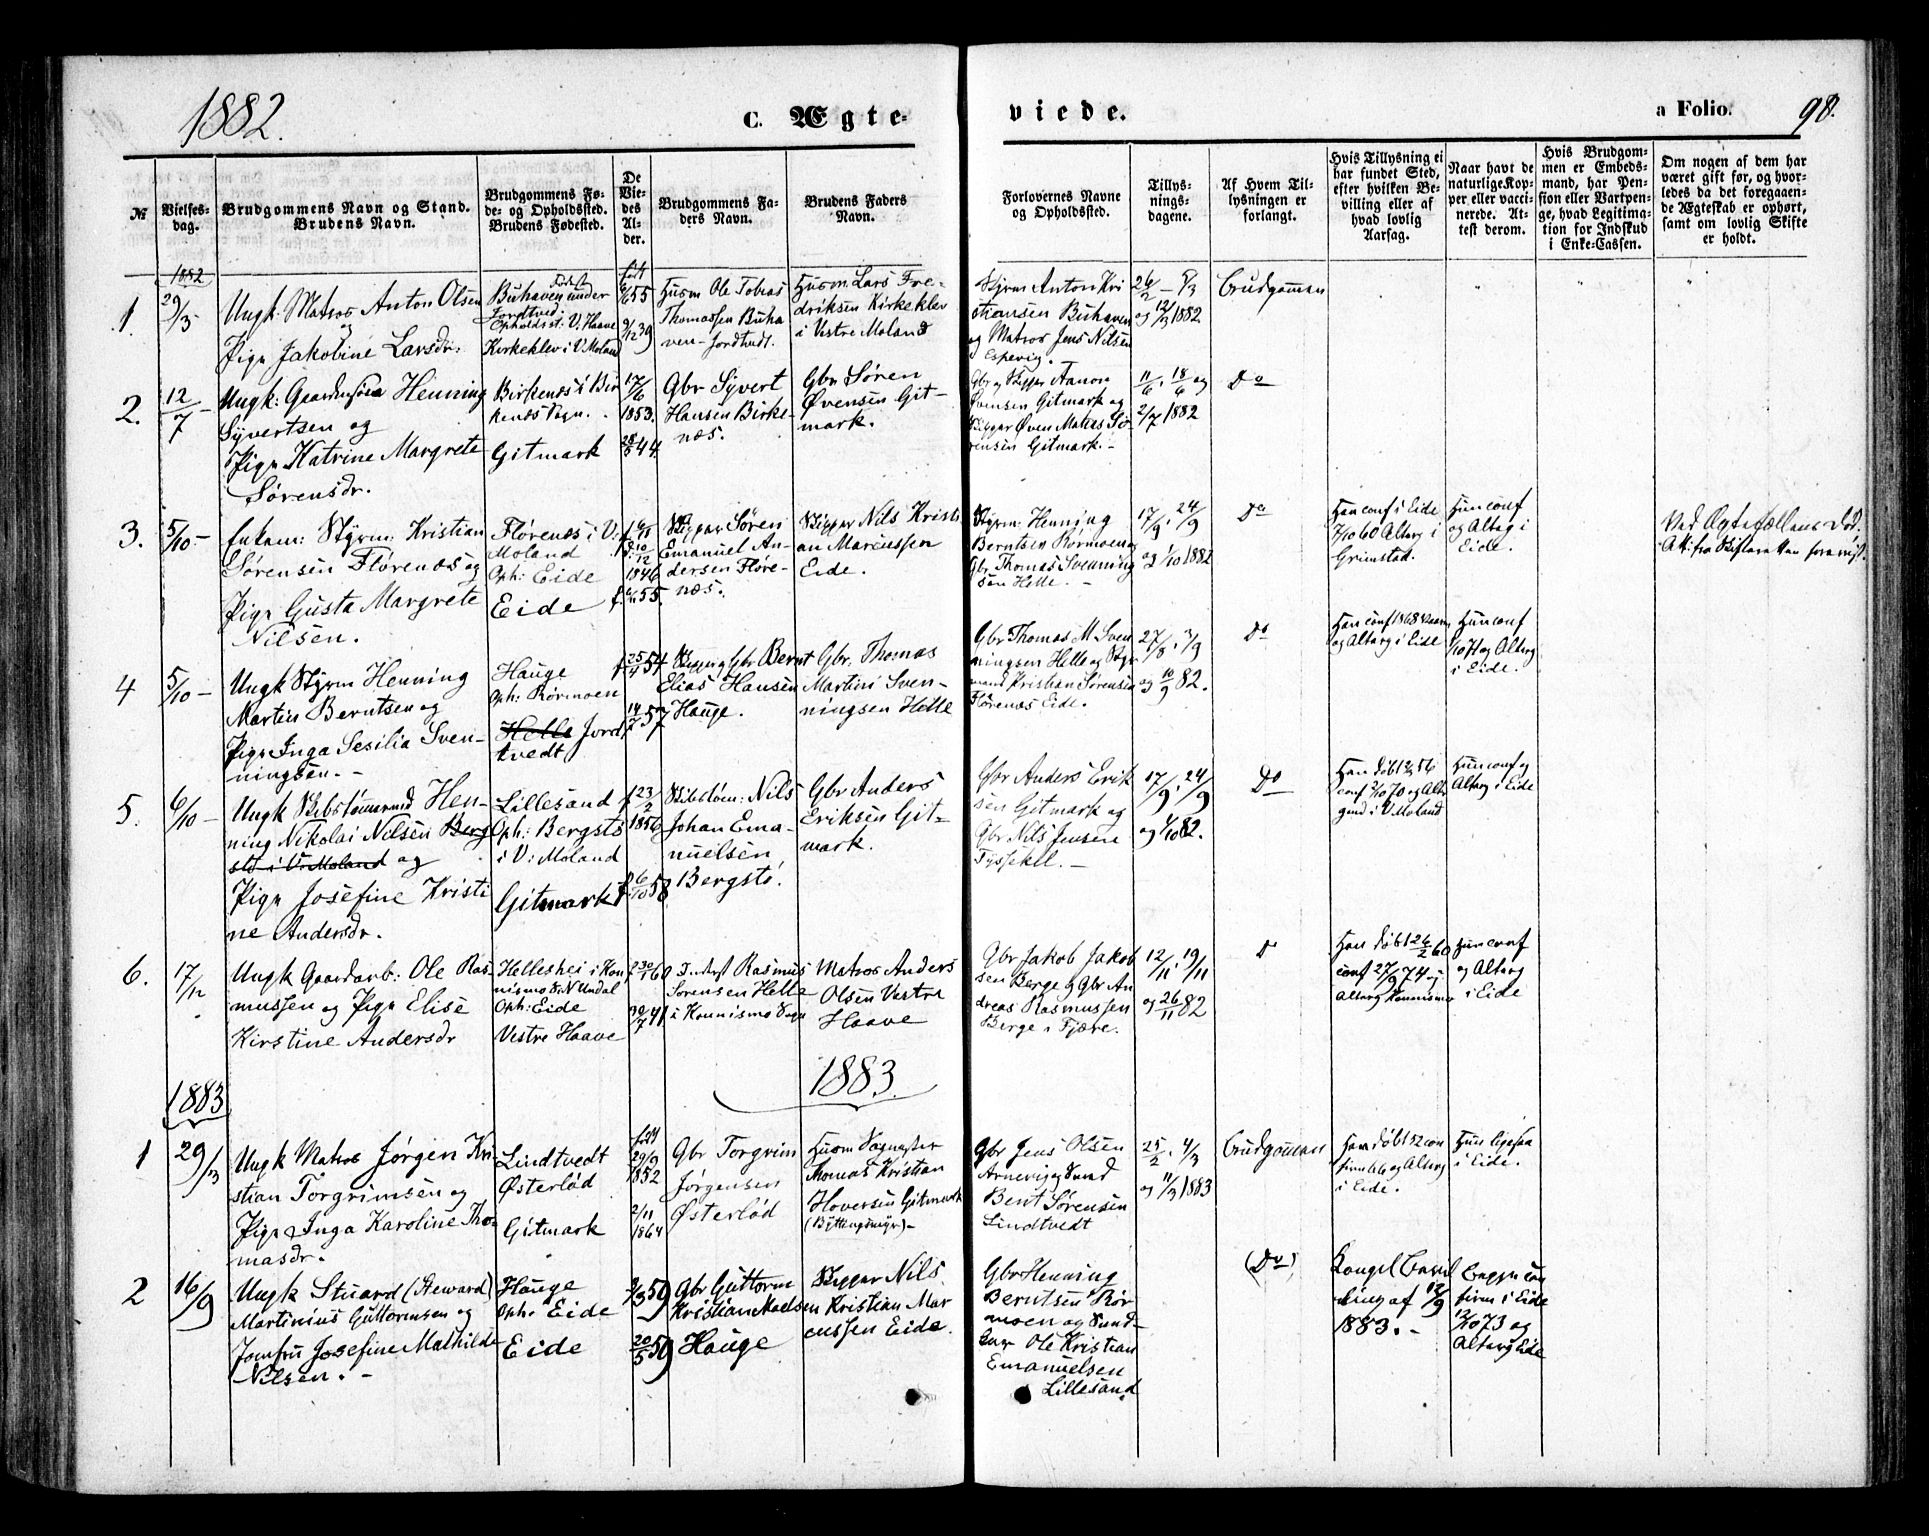 1882.
C. Ægte-
viede.
a Folio. 98.
№
Vielses-
dag.
Brudgommens Navn og Stand.
Brudens Navn.
Brudgommens Fø-
de- og Opholdssted.
Brudens Fødested.
De
Vie-
des
Al-
der.
Brudgommens Fa-
ders Navn.
Brudens Faders
Navn.
Forlovernes Navne
og Opholdssted.
Tillys-
nings-
dagene.
Af Hvem Til-
lysningen er
forlangt.
Hvis Tillysning ei
har fundet Sted,
efter hvilken Be-
villing eller af
hvad lovlig
Aarsag.
Naar havt de
naturlige Kop-
per eller vacci-
nerede. At-
test derom.
Hvis Brudgom-
men er Embeds-
mand, har Pen-
sion eller Vartpen-
ge, hvad Legitima-
tion for Indskud
i Enke-Cassen.
Om nogen af dem har
været gift før, og hvor-
ledes da det foregaaen-
de Ægteskab er ophørt,
samt om lovlig Skifte
er holdt.
1882
1.
29/3
Ungk: Matros Anton Olsen
og
Pige Jakobine Larsdr.
Buhaven under
Jordtved
Opholdsst: V: Haave
Kirkeklev i V. Moland
6/6 55
9/12 39
Husm Ole Tobias
Thomassen Buha
ven - Jordtvedt.
Husm. Lars Fre-
driksen Kirkeklev
i Vestre Moland
Styrm Anton Kri
stiansen Buhaven
og Matros Jens Nilsen
Espevig.
26/2 - 5/3
og 12/3 1882
Brudgommen
2.
12/7 -
Ungk: Gaardmsøn Henning
Syvertsen og
Pige Katrine Margrete
Sørensdr.
Birkenæs i Bir
kenæs Sogn.
Gitmark
17/6
1853.
28/8 44.
Gbr Syvert
Hansen Birke-
næs.
Gbr. Søren
Øvensen Git-
mark.
Gbr og Skipper Aanon
Øvensen Gitmark og
Skipper Øven Matias Sø-
rensen Gitmark. -
11/6. 18/6 og
2/7 1882
Do
3.
5/10 -
Enkem: Styrm: Kristian
Sørensen Florenæs og
Pige Gusta Margrete
Nilsen.
Florenæs i V:
Moland
Oph: Eide
Eide
1846
55.
Skipper Søren
Emanuel An-
dersen Flore-
næs.
Skipper Nils Kristi
an Marcussen
Eide.
Styrm: Henning
Berntsen Rørmoen og
Gbr Thomas Svenning
sen Helle. -
17/9. 24/9
og 1/10 1882
Do
Han conf i Eide
7/10 60 Alterg i
Grimstad.
Hun conf
og Alterg i
Eide.
Ved Ægtefællens Død.
4
5/10 -
Ungk Styrm Henning
Martin Berntsen og
Pige Inga Sesilia Sven-
ningsen. -
Hauge
Oph: Rørmoen
Helle Jord
tvedt
f 25/4 54
14/7 57
Skipper og Gbr Bernt
Elias Hansen
Hauge.
Gbr. Thomas
Martin Sven-
ningsen Helle
Gbr Thomas M Sven
ningsen Helle og Styr
mand Kristian Sørensen
Florenæs Eide.
27/8. 3/9
og 10/9 82.
Do
Han conf 1868
og Alterg i Eide
Hun conf
og Alterg
i Eide.
5.
6/10 -
Ungk Skibstømmermd Hen-
ning Nikolai Nilsen Berg
stø i V: Moland og
Pige Josefine Kristi
ne Andersdr.
Lillesand
Oph: Bergstø
i V: Moland
Gitmark
f 23/2
1856
f 6/10 58
Skibstøm: Nils
Johan Ema-
nuelsen
Bergstø.
Gbr Anders
Eriksen Git-
mark.
Gbr Anders Erik
sen Gitmark og
Gbr Nils Jensen
17/9. 24/9
og 1/10 82.
Do
Hun conf og
Alterg i Eide
6.
17/12
Ungk Gaardarb: Ole Ras-
mussen og Pige Elise
Kirstine Andersdr
Helleshei i Kon
nismo S: N Undal
Oph: Eide
Vestre Haave
30/1 60
30/7 41
Inderst Rasmus
Sørensen Helle
i Konnismo Sogn
Matros Anders
Olsen Vestre
Haave
Gbr Jakob Jakob
sen Berge og Gbr An
dreas Rasmussen
Berge i Fjære.
12/11. 19/11
og 26/11 82
D
Han døbt 26/2 60
conf 27/9 74 og
Alterg Konnismo
Hun conf
og Alterg
i Eide
1883
1883.
1
29/3
Ungk Matros Jørgen Kri-
stian Torgrimsen og
Pige Inga Karoline Tho-
masdr.
Lindtvedt
Østerlød
Gitmark
født
29/9
1852
2/11
1864
Gbr Torgrim
Jørgensen
Østerlød
Husm Vognester
Thomas Kristian
Hoversen Gitmark
(Byttingsmyr) -
Gbr Jens Olsen
Arnevig og Svend
Bent Sørensen
Lindtvedt
25/2. 4/3
og 11/3 1883
Brudgommen
Han døbt 52 con
firm 66 og Alterg
i Eide.
Hun ligesaa
i Eide.
2
16/9
Ungk Stuard (Steward)
Martinius Guttormsen og
Jomfru Josefine Mathilde
Nilsen. -
Hauge
Oph: Eide
Eide
59
20/5 59
Gbr Guttorm
Kristian Roelsen
Hauge
Skipper Nils
Kristian Mar
cussen Eide.
Gbr Henning
Berntsen Rør
moen og Sund-
Ole Kristian
Emanuelsen
Lillesand
(Do)
Kongel Bevil
ling af 12/9
1883. -
Begge con
firm i Eide
12/10 73 og
Alterg Eide